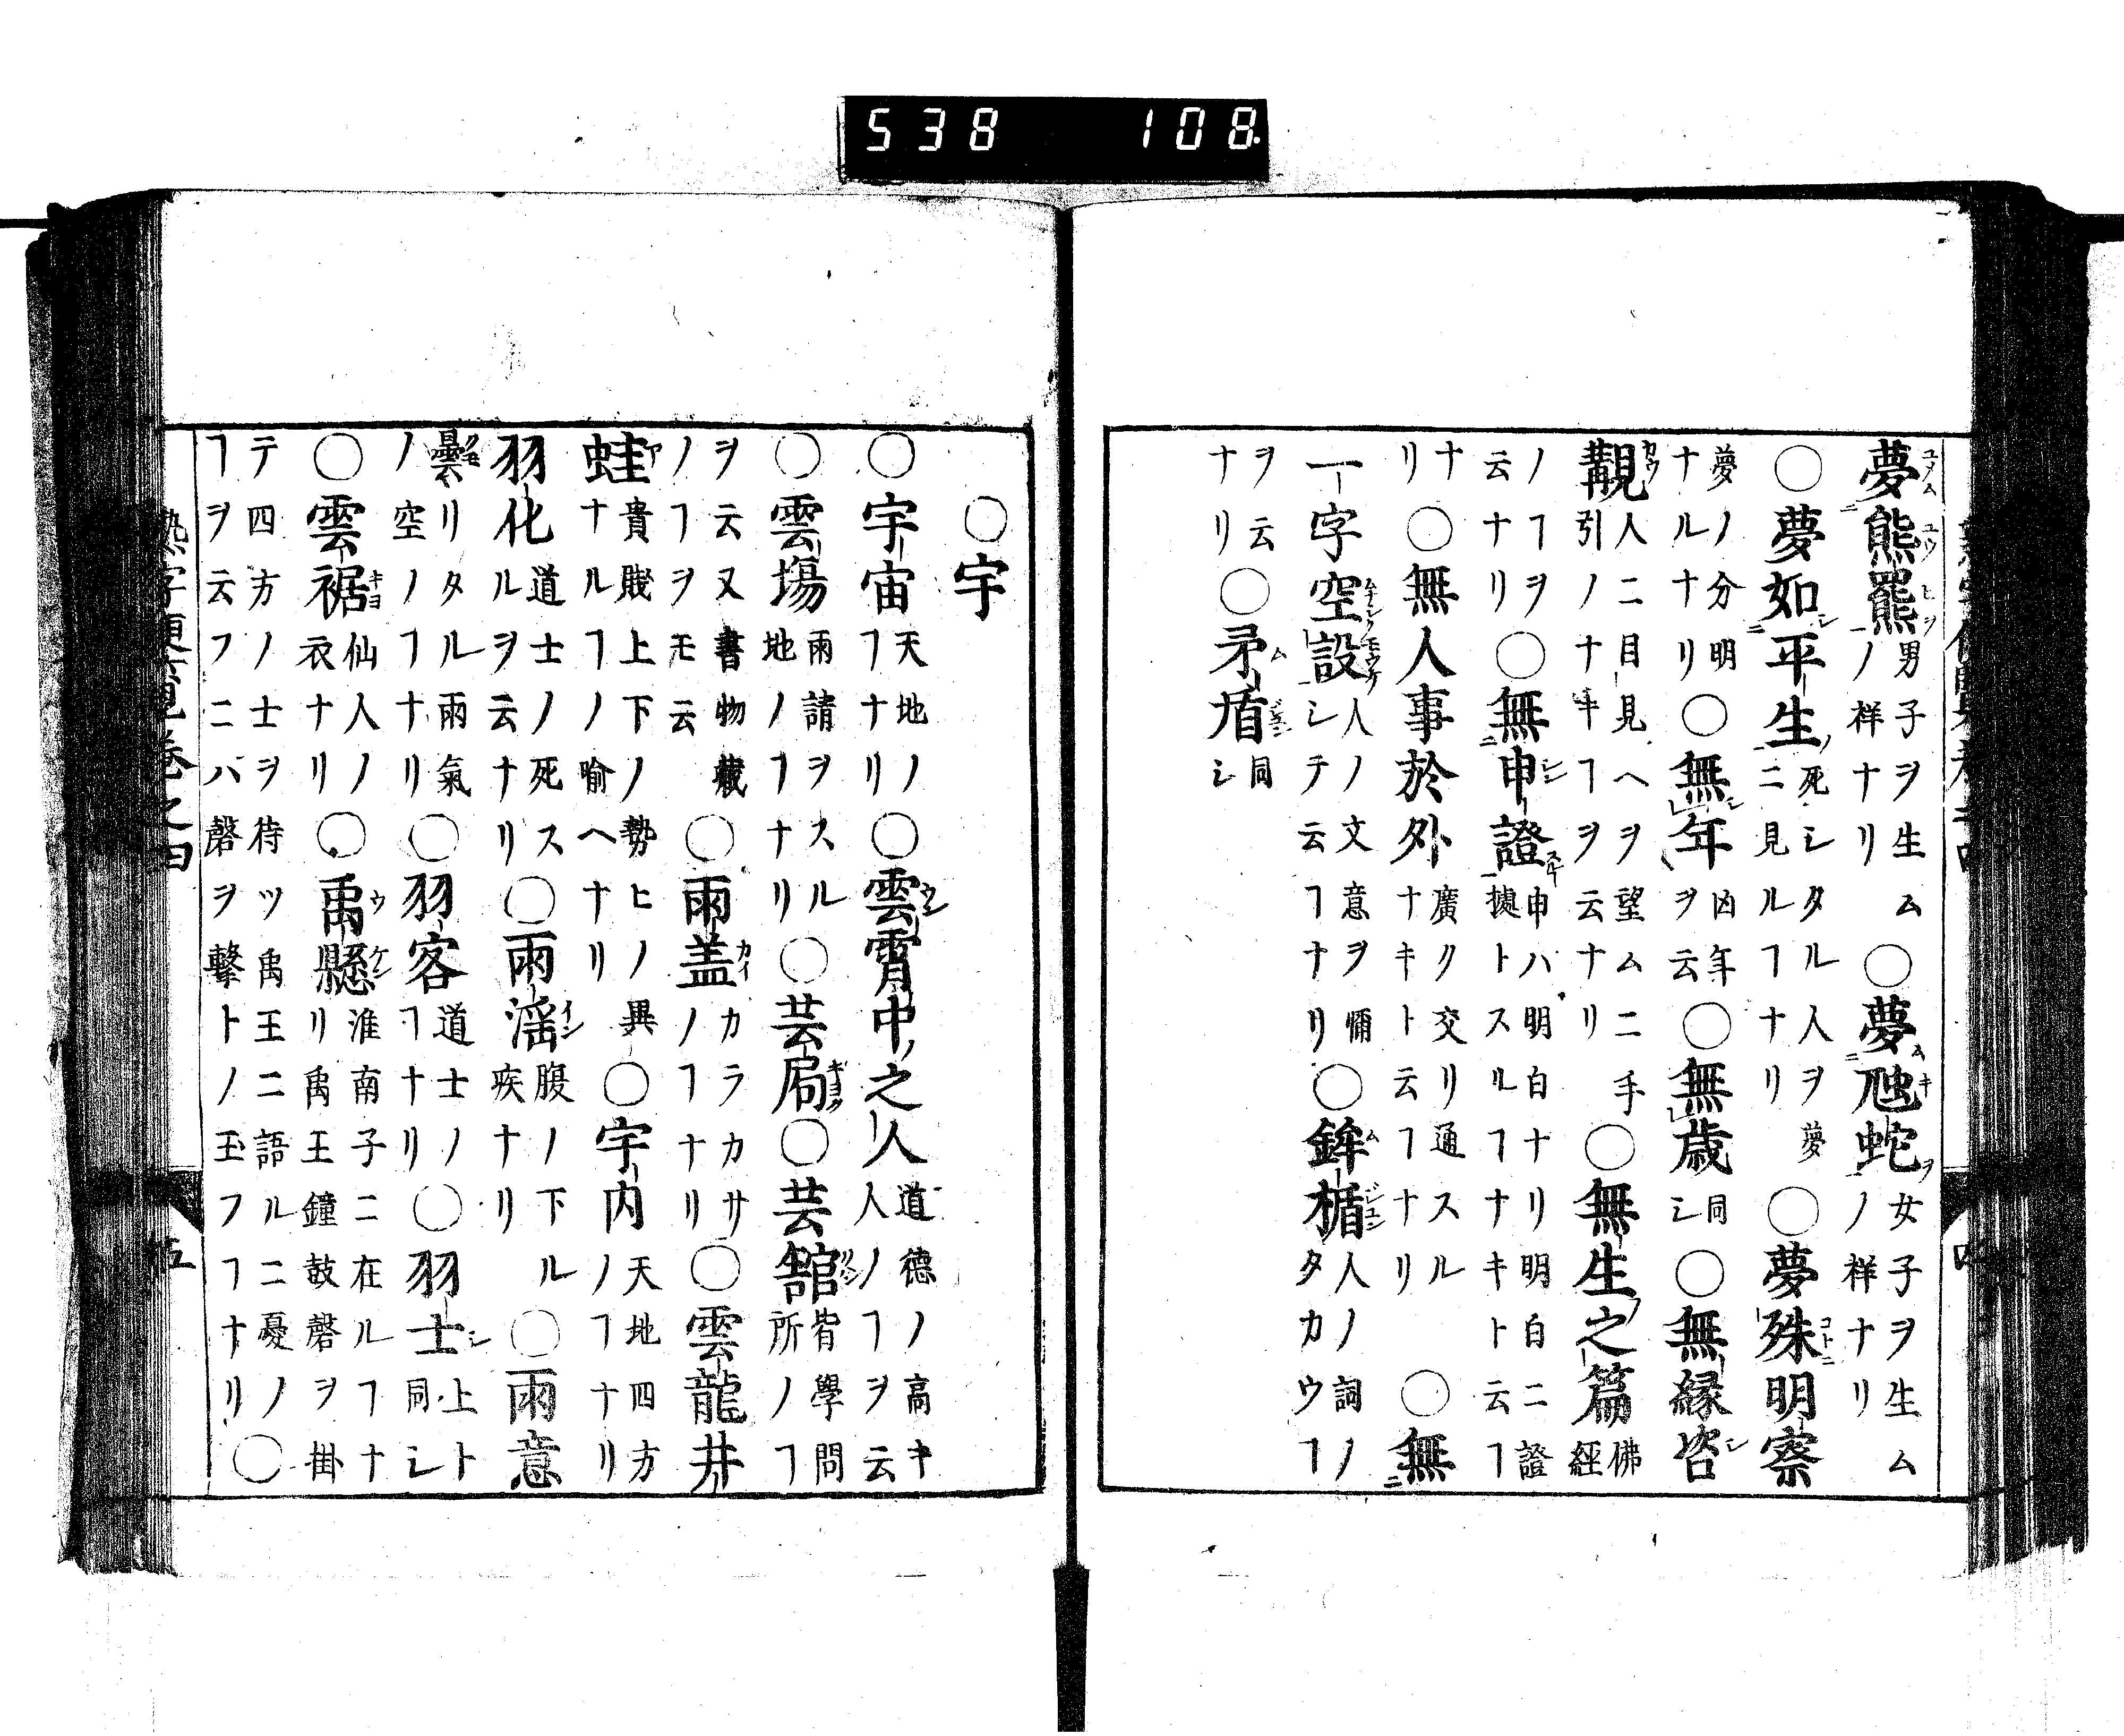 538 108
夢熊羆男子ヲ生ムノ祥ナリ○夢虺蛇女子ヲ生ムノ祥ナリ
○夢如平生死シタル人ヲ夢ニ見ルヿナリ○夢殊明察
夢ノ分明ナルナリ○無年凶年ヲ云○無歳同シ○無縁咨
覯人ニ目見ヘヲ望ムニ手引ノナキヿヲ云ナリ○無生之篇佛經
ノヿヲ云ナリ○無申證申ハ明白ナリ明白ニ證據トスルヿナキト云ヿ
ナリ○無人事於外廣ク交リ通スルナキト云ヿナリ○無
一字空設人ノ文意ヲ備シテ云ヿナリ○鉾楯人ノ詞ノタカウヿ
ヲ云ナリ○矛盾同シ
○宇
○宇宙天地ノヿナリ○雲霄中之人道德ノ高キ人ノヿヲ云
○雲場雨請ヲスル地ノヿナリ○芸局○芸館皆學問所ノヿ
ヲ云又書物藏ノヿヲモ云○雨盖カラカサノヿナリ○雲龍井
蛙貴賤上下ノ勢ヒノ異ナルヿノ喻ヘナリ○宇内天地四方ノヿナリ
羽化道士ノ死スルヲ云ナリ○雨滛腹ノ下ル疾ナリ○雨意
曇リタル雨氣ノ空ノヿナリ○羽客道士ノヿナリ○羽士上ト同シ
○雲裾仙人ノ衣ナリ○禹懸淮南子ニ在ルヿナリ禹王鐘鼓磬ヲ掛
テ四方ノ士ヲ待ツ禹王ニ語ルニ憂ノヿヲ云フニハ磬ヲ擊トノ玉フヿナリ○